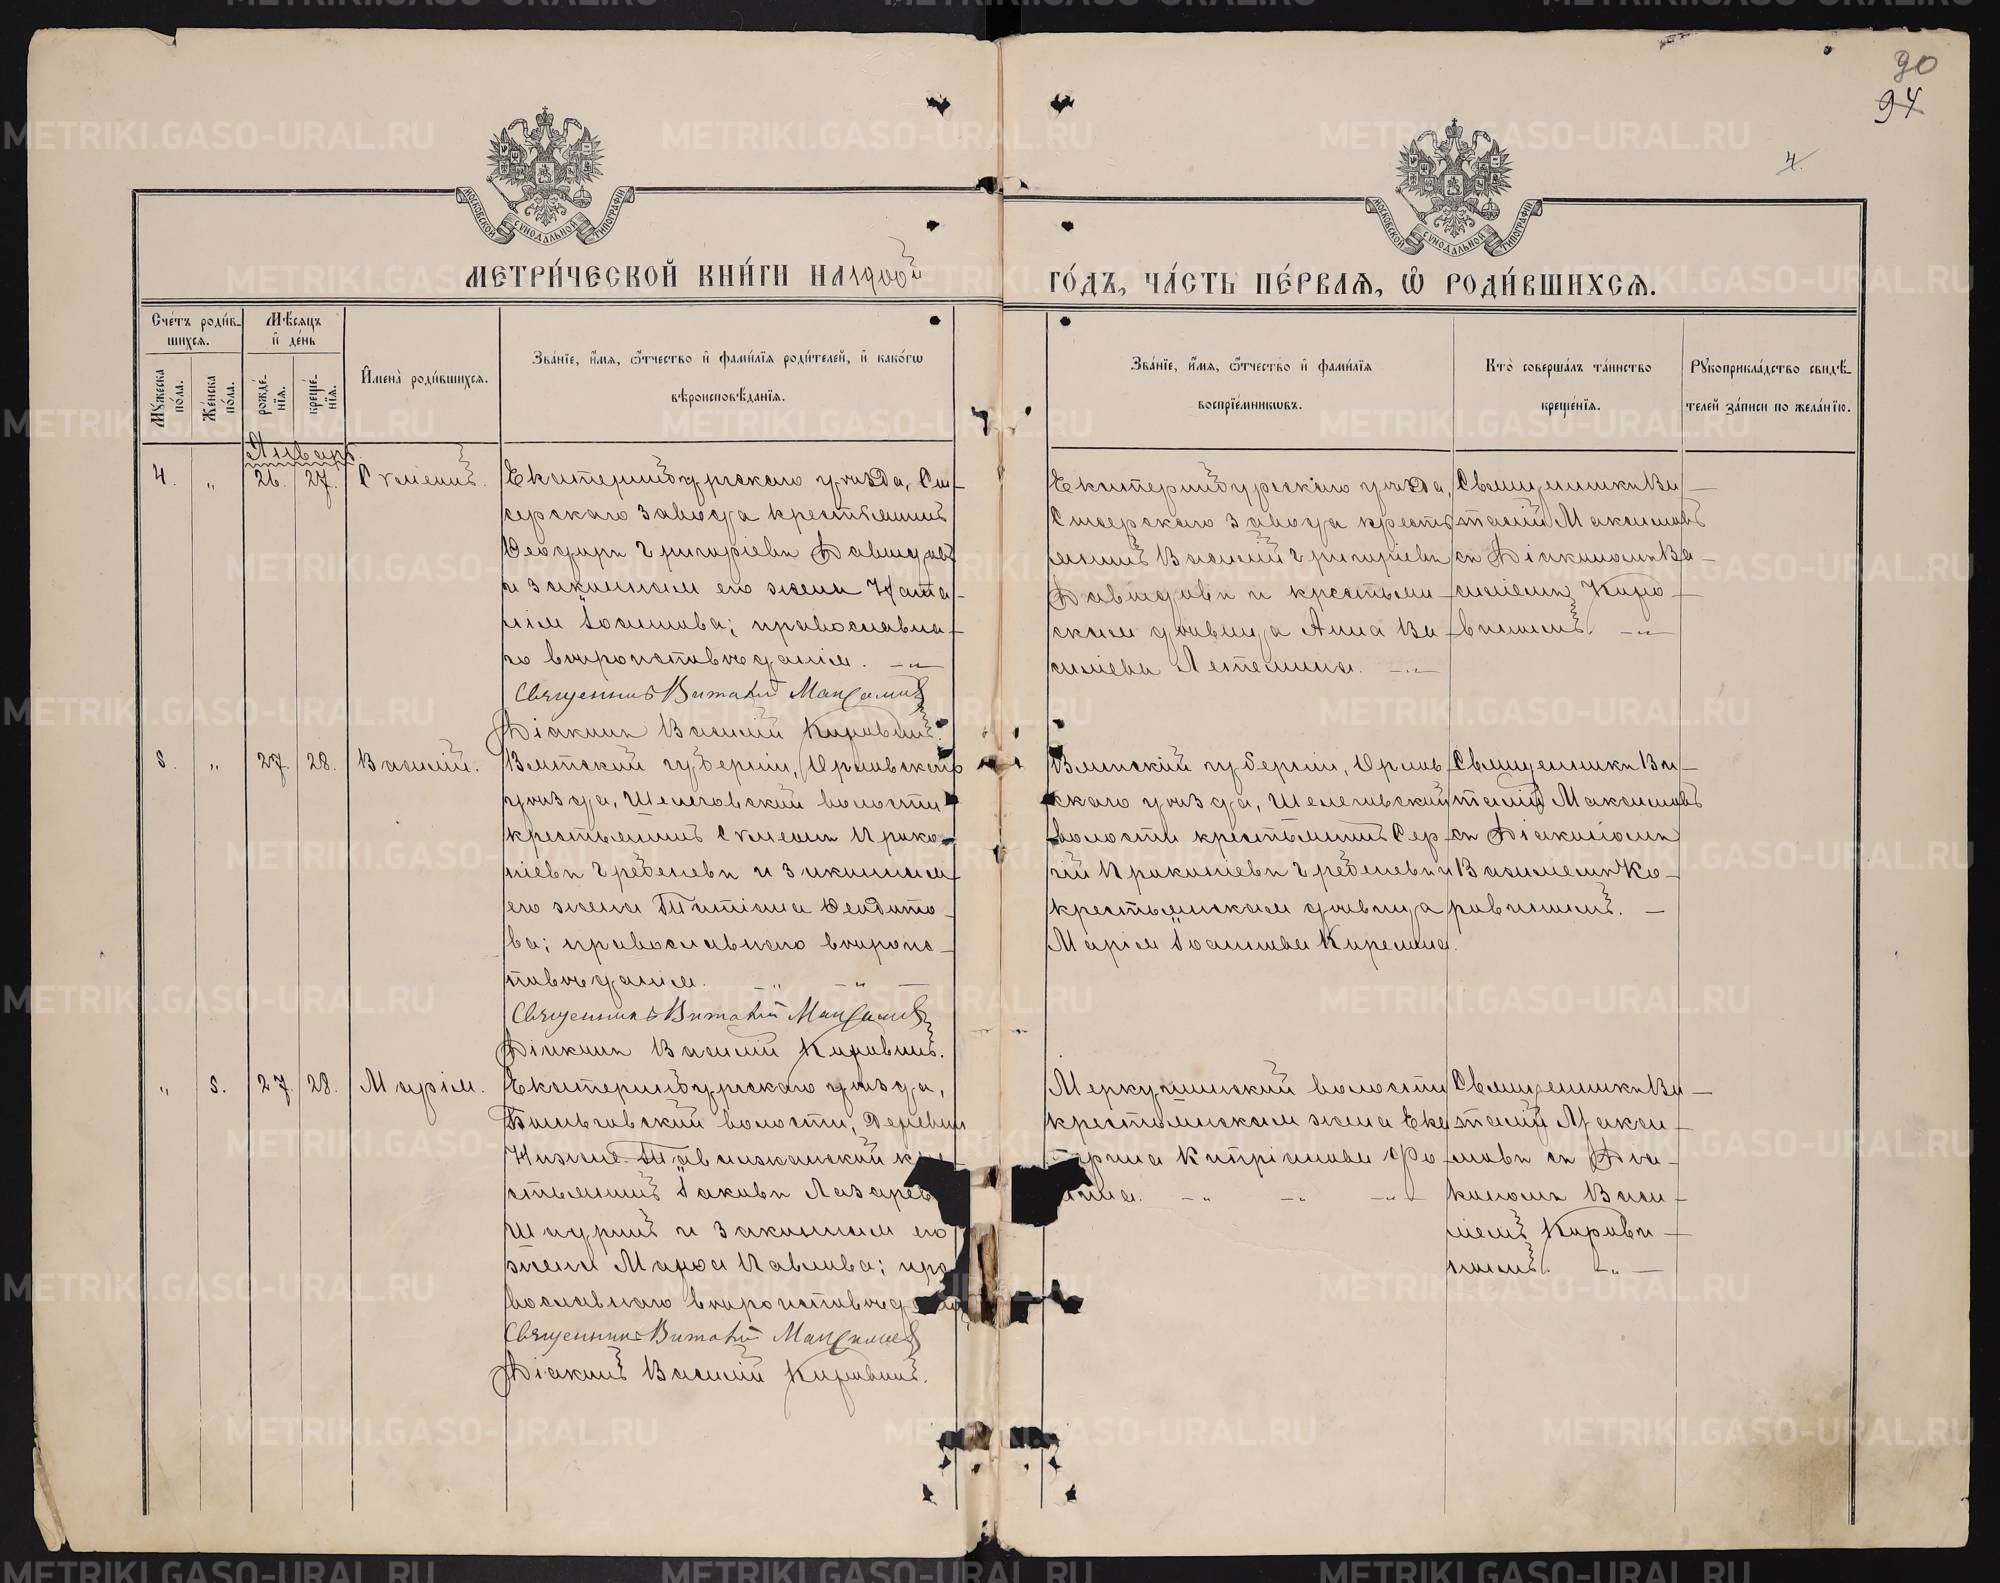 90
94
4.
МОСКОВСКОЙ СѴНОДАЛЬНОЙ ТИПОГРАФІИ
МОСКОВСКОЙ СѴНОДАЛЬНОЙ ТИПОГРАФІИ
МЕТРИ́ЧЕСКОЙ КНИ́ГИ НА 1900й
ГО́ДЪ, ЧА́СТЬ ПЕ́РВАѦ, Ѡ҆ РОДИ́ВШИХСѦ.
Сче́тъ роди́в-
шихсѧ.
Мѣ́сѧцъ
и҆ де́нь
Мꙋ́жеска
по́ла.
Же́нска
по́ла.
рожде́-
нїѧ.
креще́-
нїѧ.
И҆мена̀ роди́вшихсѧ.
Зва́нїе, и҆́мѧ, ѻ҆́тчество и҆ фами́лїѧ роди́телей, и҆ како́гѡ
вѣроисповѣ́данїѧ.
Зва́нїе, и҆́мѧ, ѻ҆́тчество и҆ фами́лїѧ
воспрїе́мникѡвъ.
Кто̀ соверша́лъ та́инство
креще́нїѧ.
Рꙋкоприкла́дство свидѣ́-
телей за́писи по жела́нїю.
Январь.
4. " 26. 27. Сѵмеонъ.
Екатеринбургскаго уѣзда, Сы-
серскаго завода крестьянинъ
Ѳеодоръ Григоріевъ Давыдовъ
и законная его жена Ната-
лія Іоаннова; православна-
го вѣроисповѣданія.
Священникъ Виталій Максимовъ
Діаконъ Василій Коровинъ.
Екатеринбургскаго уѣзда,
Сысерскаго завода кресть-
янинъ Василій Григоріевъ
Давыдовъ и крестьян-
ская дѣвица Анна Ва-
силіева Летемина.
Священникъ Ви-
талій Максимовъ
съ Діакономъ Ва-
силіемъ Коро-
винымъ.
5. " 27. 28. Василій.
Вятской губерніи, Орловскаго
уѣзда, Шелеговской волости
крестьянинъ Сѵмеонъ Проко-
піевъ Гребеневъ и законная
его жена Татіана Ѳеодото-
ва; православнаго вѣроис-
повѣданія.
Священникъ Виталій Максимовъ
Діаконъ Василій Коровинъ.
Вятской губерніи, Орлов-
скаго уѣзда, Шелеговской
волости крестьянинъ Сер-
гій Прокопіевъ Гребеневъ и
крестьянская дѣвица
Марія Іоаннова Кирешина.
Священникъ Ви-
талій Максимовъ
съ Діакономъ
Василіемъ Ко-
ровинымъ.
" 5. 27. 28. Марія.
Екатеринбургскаго уѣзда,
волости, деревни
Нижне-
стьянинъ Іаковъ Лазаревъ
и законная его
жена Павлова; пра-
вославнаго вѣроисповѣданія
Священникъ Виталій Максимовъ
Діаконъ Василій Коровинъ.
Меркушинской волости
крестьянская жена Ека-
терина Кипріанова Фо-
мина.
Священникъ Ви-
талій Макси-
мовъ съ Діа-
кономъ Васи-
ліемъ Корови-
нымъ.
METRIKI.GASO-URAL.RU